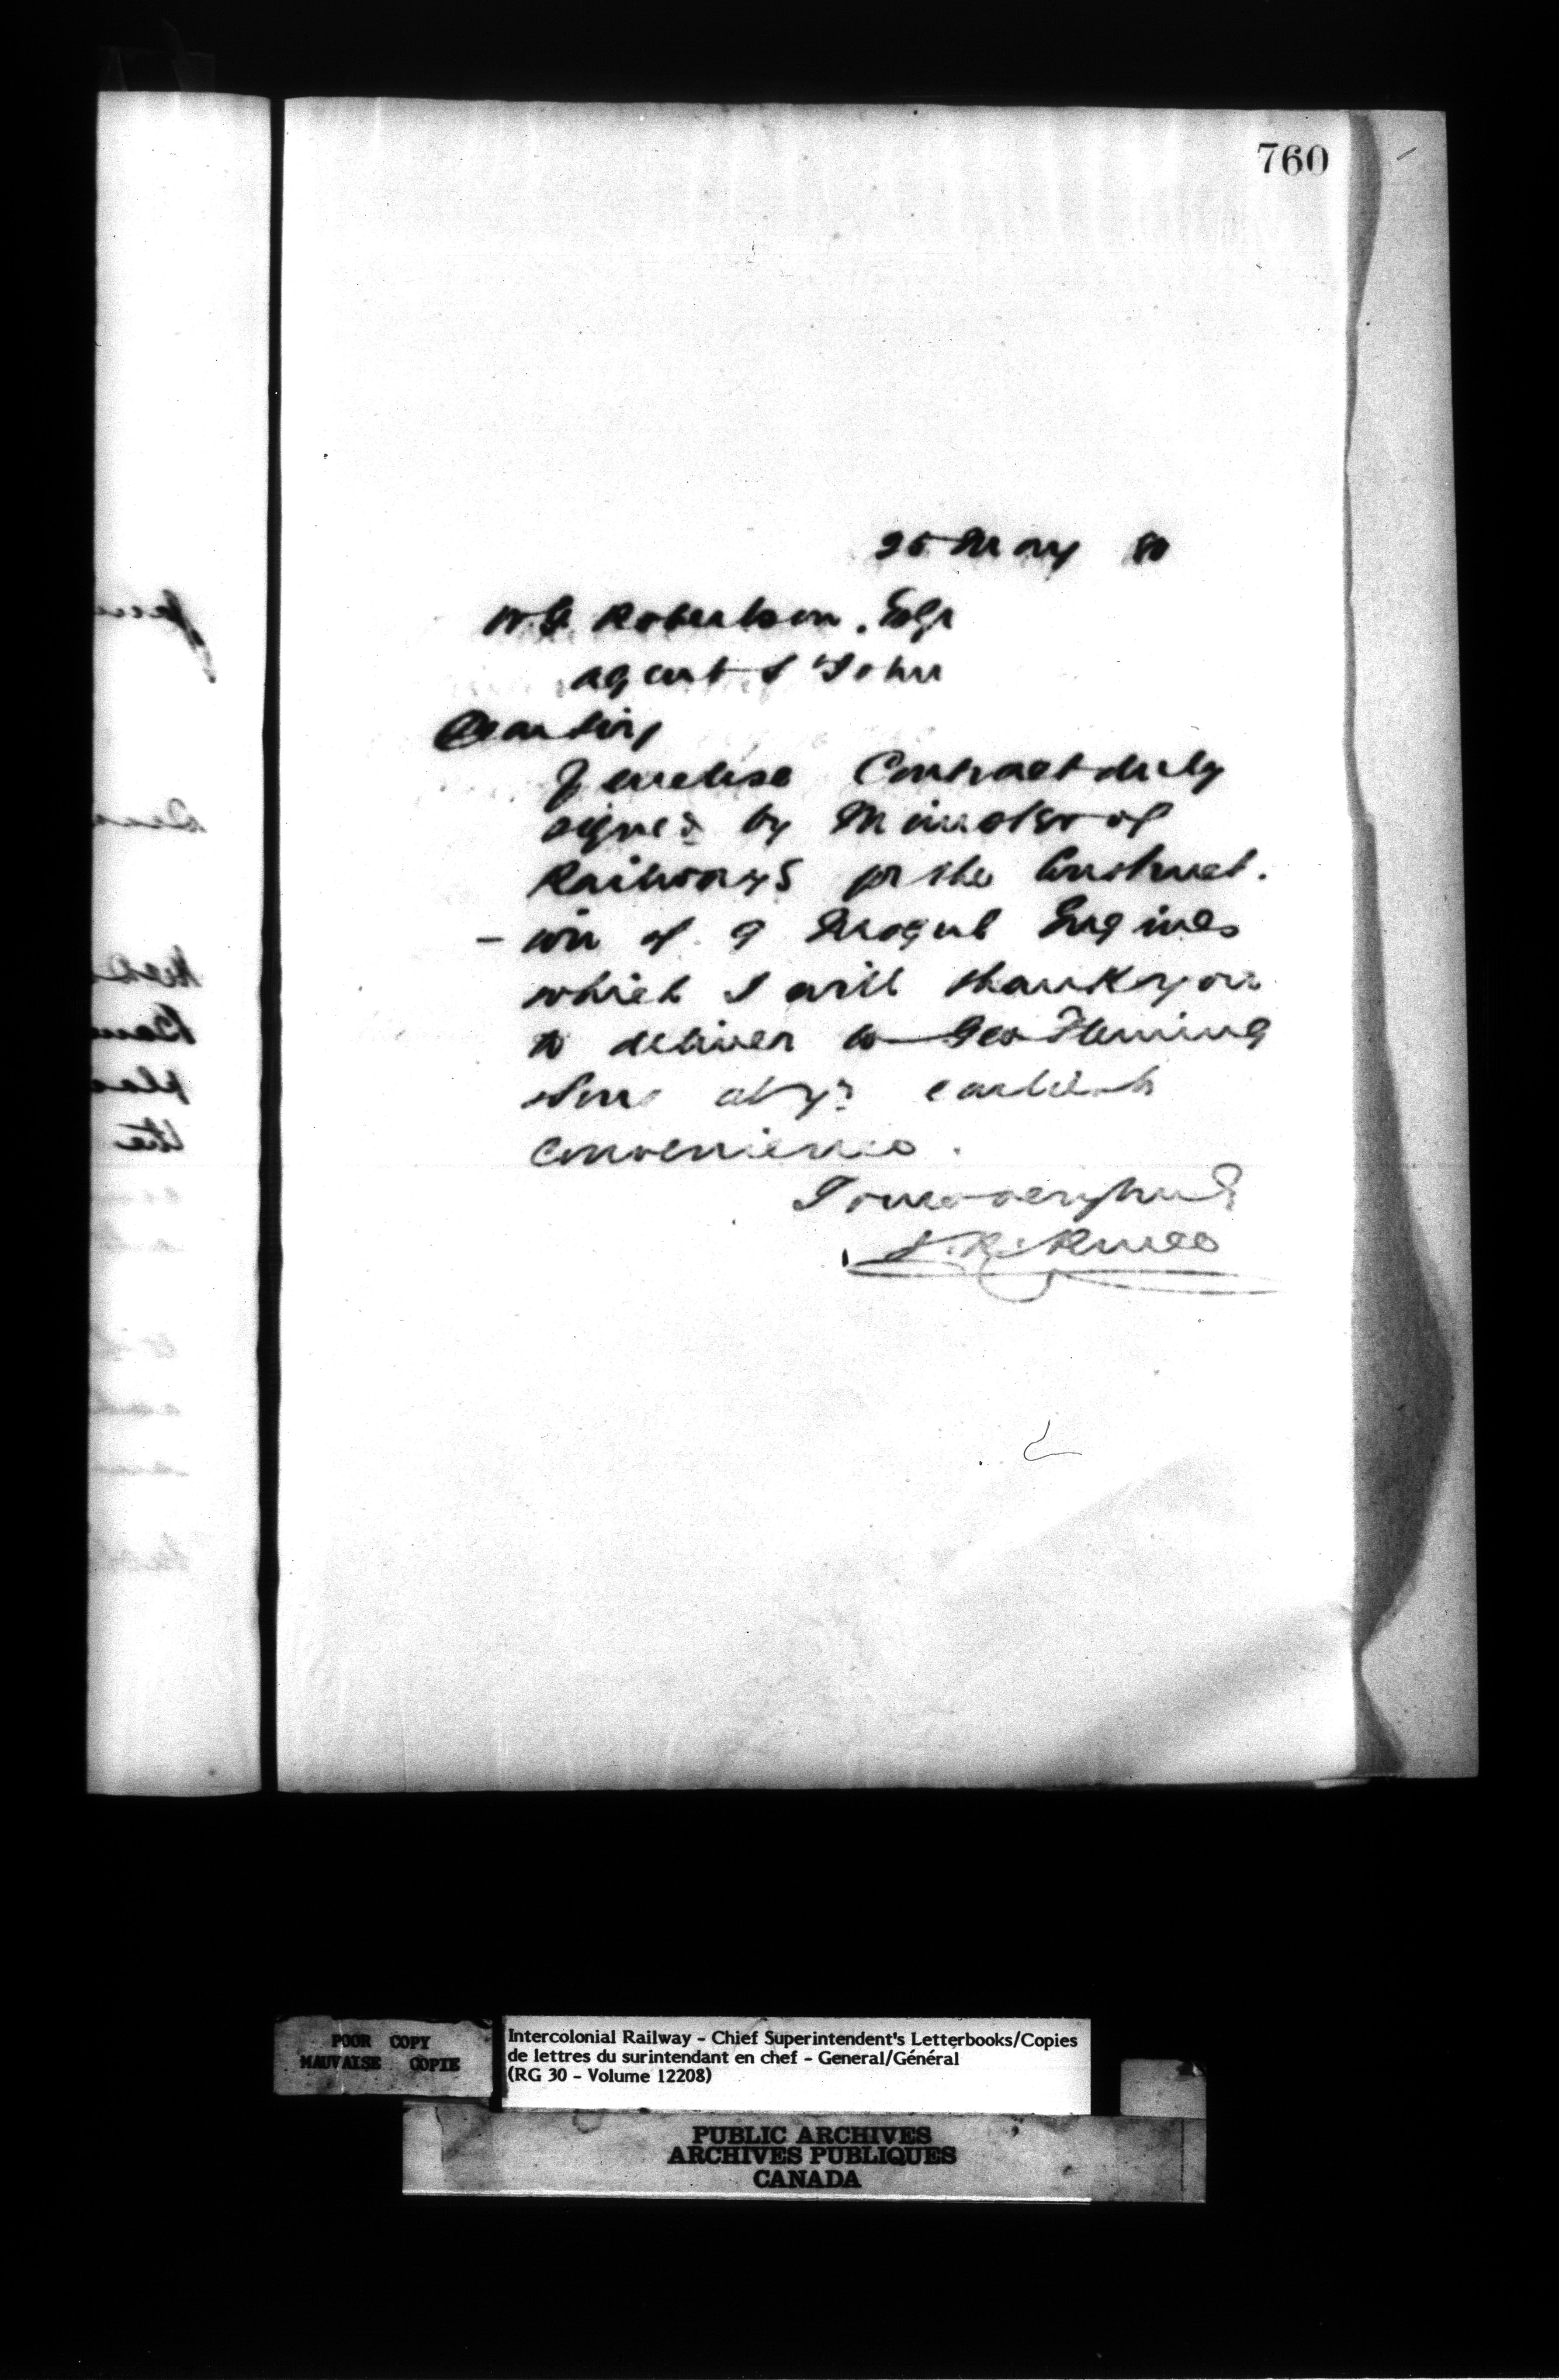 760
25 May 80
W. G. Robertson. Esqr
Agent St John
Dear Sir,
I enclose Contract duly
signed by Minister of
Railways for the Construct.
- ion of 9 Mogul Engines
which I will thank you
to deliver to Geo Fleming
at yr earliest
Convenience.
Yours very truly
POOR COPY
MAUVAISE COPIE
Intercolonial Railway - Chief Superintendent's Letterbooks/Copies
de lettres du surintendant en chef - General/Général
(RG 30 - Volume 12208)
PUBLIC ARCHIVES
ARCHIVES PUBLIQUES
CANADA